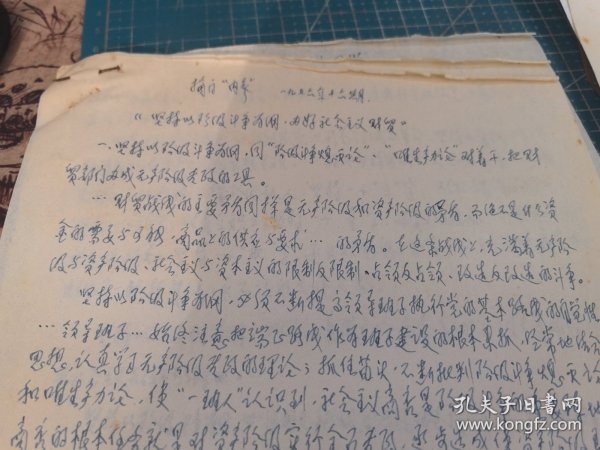 摘自“内参” 一九七六年十六期
《坚持以阶级斗争为纲，办好社会主义财贸》
一、坚持以阶级斗争为纲，同“阶级斗争熄灭论”、“唯生产力论”对着干，把财
贸部门办成无产阶级专政的工具。
…财贸战线的主要矛盾同样是无产阶级和资产阶级的矛盾，而绝不是什么资
金的需要与可能，商品上的供应与要求…的矛盾。在这条战线上，充满着无产阶
级与资产阶级，社会主义与资本主义的限制反限制，占领反占领，改造反改造的斗争。
坚持以阶级斗争为纲，必须不断提高领导班子执行党的基本路线的自觉性
…领导班子…始终注意把端正路线作为班子建设的根本来抓，经常地结合
思想，认真学习无产阶级专政的理论；抓住苗头，不断批判阶级斗争熄灭论
和唯生产力论，使“一班人”认识到，社会主义商业是
商业的根本任务就是对资产阶级实行全面专政，
孔夫子旧书网
www.kongfz.com